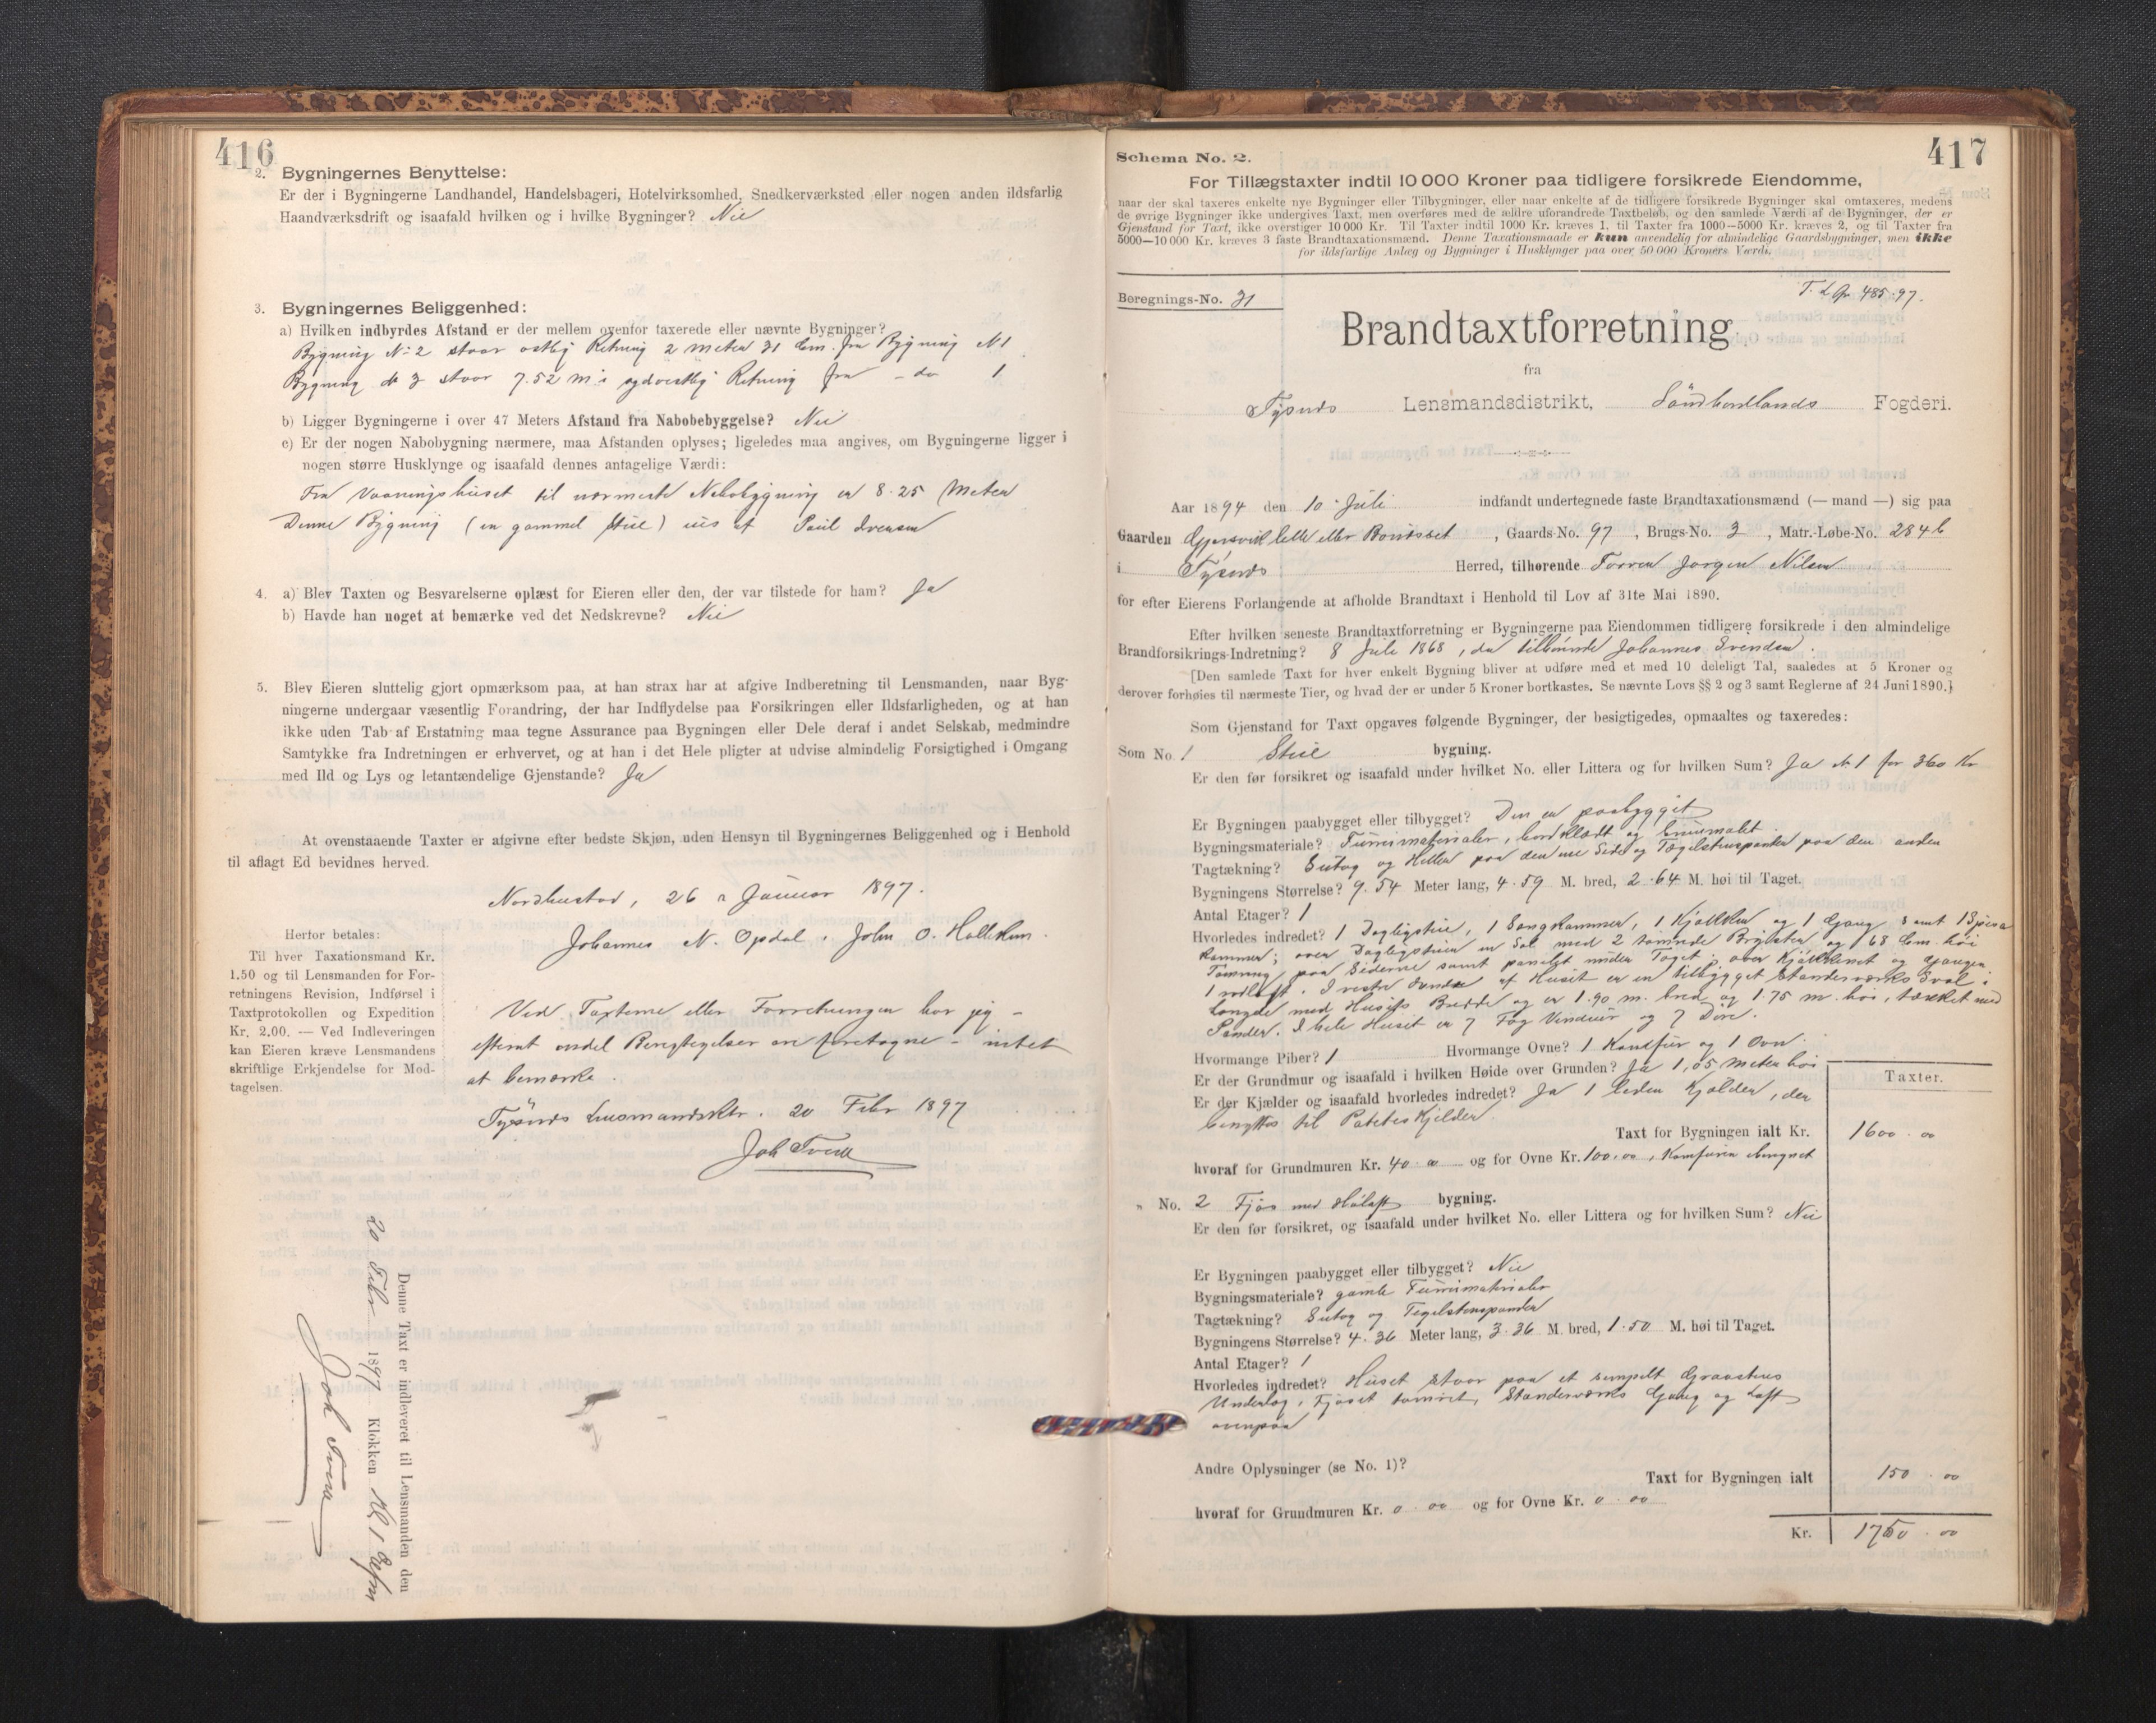 416
2. Bygningernes Benyttelse:
Er der i Bygningerne Landhandel, Handelsbageri, Hotelvirksomhed, Snedkerværksted eller nogen anden ildsfarlig
Haandværksdrift og isaafald hvilken og i hvilke Bygninger? Nei
3. Bygningernes Beliggenhed:
a) Hvilken indbyrdes Afstand er der mellem ovenfor taxerede eller nævnte Bygninger?
Bygning No 2 staar ostlig Retning 2 meter 31 Cm. fra Bygning No 1
Bygning do 3 staar 7.52 m i sydvestlig Retning fra - do 1
b) Ligger Bygningerne i over 47 Meters Afstand fra Nabobebyggelse? Nei
c) Er der nogen Nabobygning nærmere, maa Afstanden oplyses; ligeledes maa angives, om Bygningerne ligger i
nogen større Husklynge og isaafald dennes antagelige Værdi:
Fra Vaaningshuset til nærmeste Nabobygning er 8.25 Meter
Denne Bygning (en gammel stue) eies af Poul Iversen
4. a) Blev Taxten og Besvarelserne oplæst for Eieren eller den, der var tilstede for ham? Ja
b) Havde han noget at bemærke ved det Nedskrevne? Nei
5. Blev Eieren sluttelig gjort opmærksom paa, at han strax har at afgive Indberetning til Lensmanden, naar Byg-
ningerne undergaar væsentlig Forandring, der har Indflydelse paa Forsikringen eller Ildsfarligheden, og at han
ikke uden Tab af Erstatning maa tegne Assurance paa Bygningen eller Dele deraf i andet Selskab, medmindre
Samtykke fra Indretningen er erhvervet, og at han i det Hele pligter at udvise almindelig Forsigtighed i Omgang
med Ild og Lys og letantændelige Gjenstande? Ja
At ovenstaaende Taxter er afgivne efter bedste Skjøn, uden Hensyn til Bygningernes Beliggenhed og i Henhold
til aflagt Ed bevidnes herved.
Nordhustad, 26 Januar 1897.
Johannes N. Opdal. John O. Hallekun
Herfor betales:
Til hver Taxationsmand Kr.
1.50 og til Lensmanden for For-
retningens Revision, Indførsel i
Taxtprotokollen og Expedition
Kr. 2.00. — Ved Indleveringen
kan Eieren kræve Lensmandens
skriftlige Erkjendelse for Mod-
tagelsen.
Ved Taxterne eller Forretningen har jeg -
efterat endel Berigtigelser ere foretagne - intet
at bemærke.
Tysnes Lensmandsktr. 20 Febr 1897
Joh Tveit
Denne Taxt er indleveret til Lensmanden den
20 Febr 1897 Klokken Kl 1 Efm
Joh Tveit
417
Schema No. 2.
For Tillægstaxter indtil 10 000 Kroner paa tidligere forsikrede Eiendomme,
naar der skal taxeres enkelte nye Bygninger eller Tilbygninger, eller naar enkelte af de tidligere forsikrede Bygninger skal omtaxeres, medens
de øvrige Bygninger ikke undergives Taxt, men overføres med de ældre uforandrede Taxtbeløb, og den samlede Værdi af de Bygninger, der er
Gjenstand for Taxt, ikke overstiger 10 000 Kr. Til Taxter indtil 1000 Kr. kræves 1, til Taxter fra 1000—5000 Kr. kræves 2, og til Taxter fra
5000—10 000 Kr. kræves 3 faste Brandtaxationsmænd. Denne Taxationsmaade er kun anvendelig for almindelige Gaardsbygninger, men ikke
for ildsfarlige Anlæg og Bygninger i Husklynger paa over 50 000 Kroners Værdi.
Beregnings-No. 31
485.97.
Brandtaxtforretning
fra
Tysnes Lensmandsdistrikt, Söndhordlands Fogderi.
Aar 1894 den 10 Juli indfandt undertegnede faste Brandtaxationsmænd (— mand —) sig paa
Gaarden Gjersvik lille eller Bordset, Gaards-No. 97, Brugs-No. 3, Matr.-Løbe-No. 284 b
i Tysnes Herred, tilhørende Torres Jorgen Nilsen
for efter Eierens Forlangende at afholde Brandtaxt i Henhold til Lov af 31te Mai 1890.
Efter hvilken seneste Brandtaxtforretning er Bygningerne paa Eiendommen tidligere forsikrede i den almindelige
Brandforsikrings-Indretning? 8 Juli 1868, da tilhörende Johannes Svendsen.
[Den samlede Taxt for hver enkelt Bygning bliver at udføre med et med 10 deleligt Tal, saaledes at 5 Kroner og
derover forhøies til nærmeste Tier, og hvad der er under 5 Kroner bortkastes. Se nævnte Lovs §§ 2 og 3 samt Reglerne af 24 Juni 1890.]
Som Gjenstand for Taxt opgaves følgende Bygninger, der besigtigedes, opmaaltes og taxeredes:
Som No. 1 Stue bygning.
Er den før forsikret og isaafald under hvilket No. eller Littera og for hvilken Sum? Ja No 1 for 360 Kr
Er Bygningen paabygget eller tilbygget? Den er paabygget
Bygningsmateriale? Furrumaterialer, bordklædt og
Tagtækning? Sutag og Heller paa den ene Side og Tegelstenspander paa den anden
Bygningens Størrelse? 9.54 Meter lang, 4.59 M. bred, 2.64 M. høi til Taget.
Antal Etager? 1
Hvorledes indredet? 1 Dagligstue, 1 Sengkammer, 1 Kjøkken og 1 Gang samt 1 Spise
kammer; over Dagligstuen en Sal med 2 tømrede Bryster og 68 Cm. høi
Tømring paa Siderne samt panelet under Taget; over Kjøkkenet og Gangen
1 rodloft. I vestre Ende af Huset er en tilbygget Standerværks Sval i
Længde med Husets Bredde og er 1.90 m. bred og 1.75 m. høi, tækket med
Pander. I hele Huset er 7 Fag Vinduer og 7 Döre.
Hvormange Piber? 1 Hvormange Ovne? 1 Komfür og 1 Ovn.
Er der Grundmur og isaafald i hvilken Høide over Grunden? Ja 1,05 Meter høi
Er der Kjælder og isaafald hvorledes indredet? Ja 1 liden Kjelder, der
benyttes til Potetes Kjelder
Taxter.
Taxt for Bygningen ialt Kr. 1600.00
hvoraf for Grundmuren Kr. 40.00 og for Ovne Kr. 100.00, Komfüren iberegnet
" No. 2 Fjös med Höloft bygning.
Er den før forsikret, og isaafald under hvilket No. eller Littera og for hvilken Sum? Nei
Er Bygningen paabygget eller tilbygget? Nei
Bygningsmateriale? gamle Furrumaterialer
Tagtækning? Sutag og Tegelstenspander
Bygningens Størrelse? 4.36 Meter lang, 3.36 M. bred, 1.50 M. høi til Taget.
Antal Etager? 1
Hvorledes indredet? Huset staar paa et simpelt Graastens
Underlag, Fjøset tømret, Standerværks Gang og Loft
ovenpaa
Andre Oplysninger (se No. 1)?
Taxt for Bygningen ialt 150.00
hvoraf for Grundmuren Kr. 0.00 og for Ovne Kr. 0.00
Kr. 1750.00